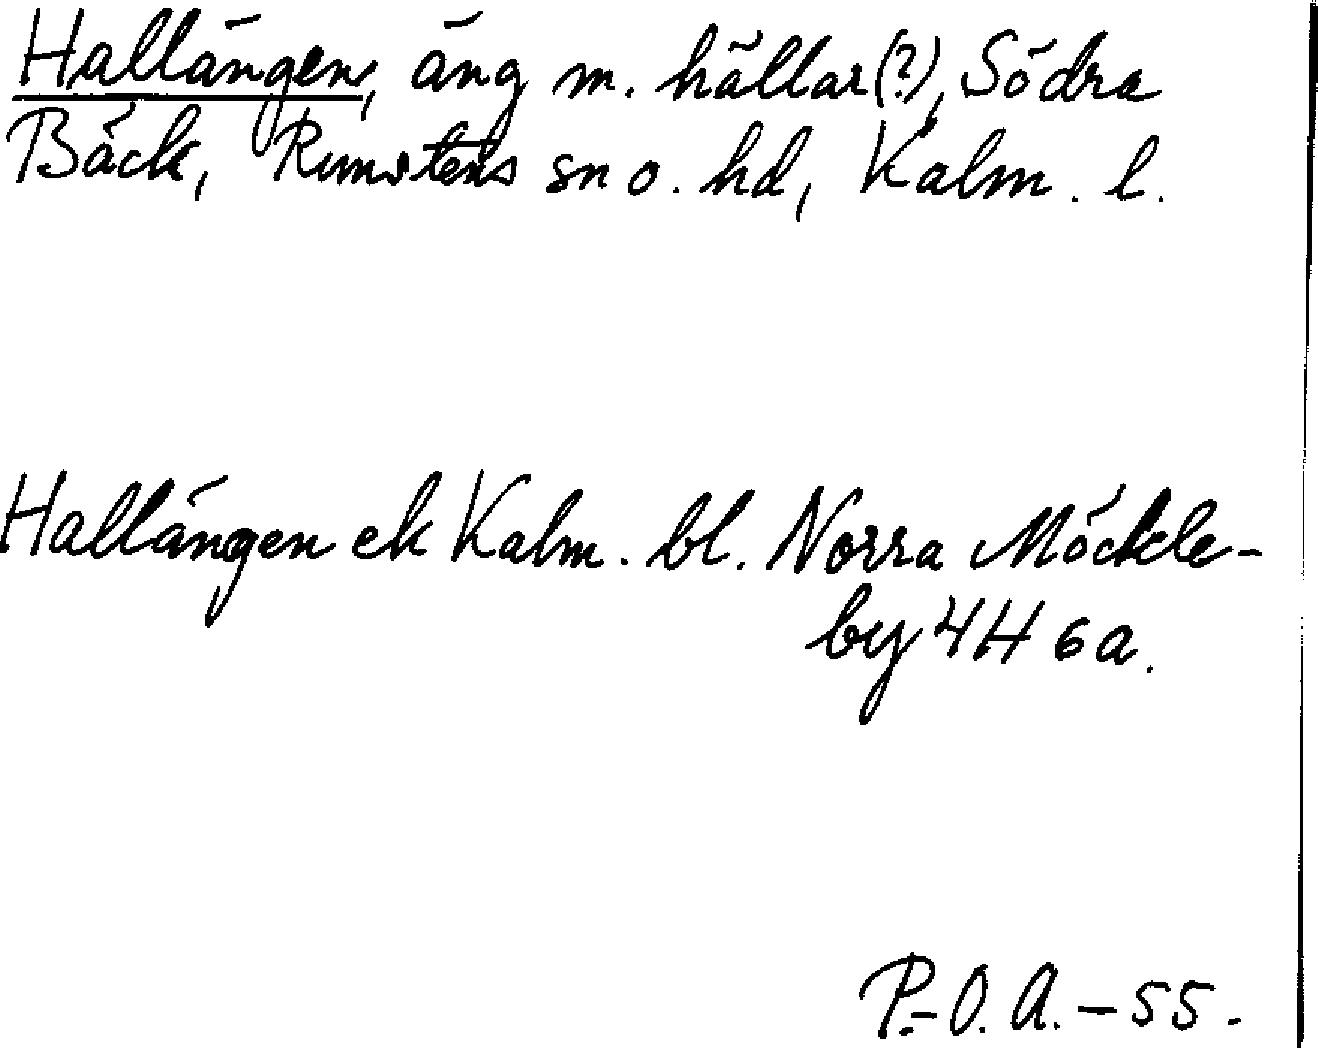 Hallängen, äng m. hällar(?), Södra
Bäck, Runstens sn o. hd, Kalm. l.
Hallängen ek Kalm. bl. Norra Möckle-
by 4H 6a.
P.-O. A. - 55.